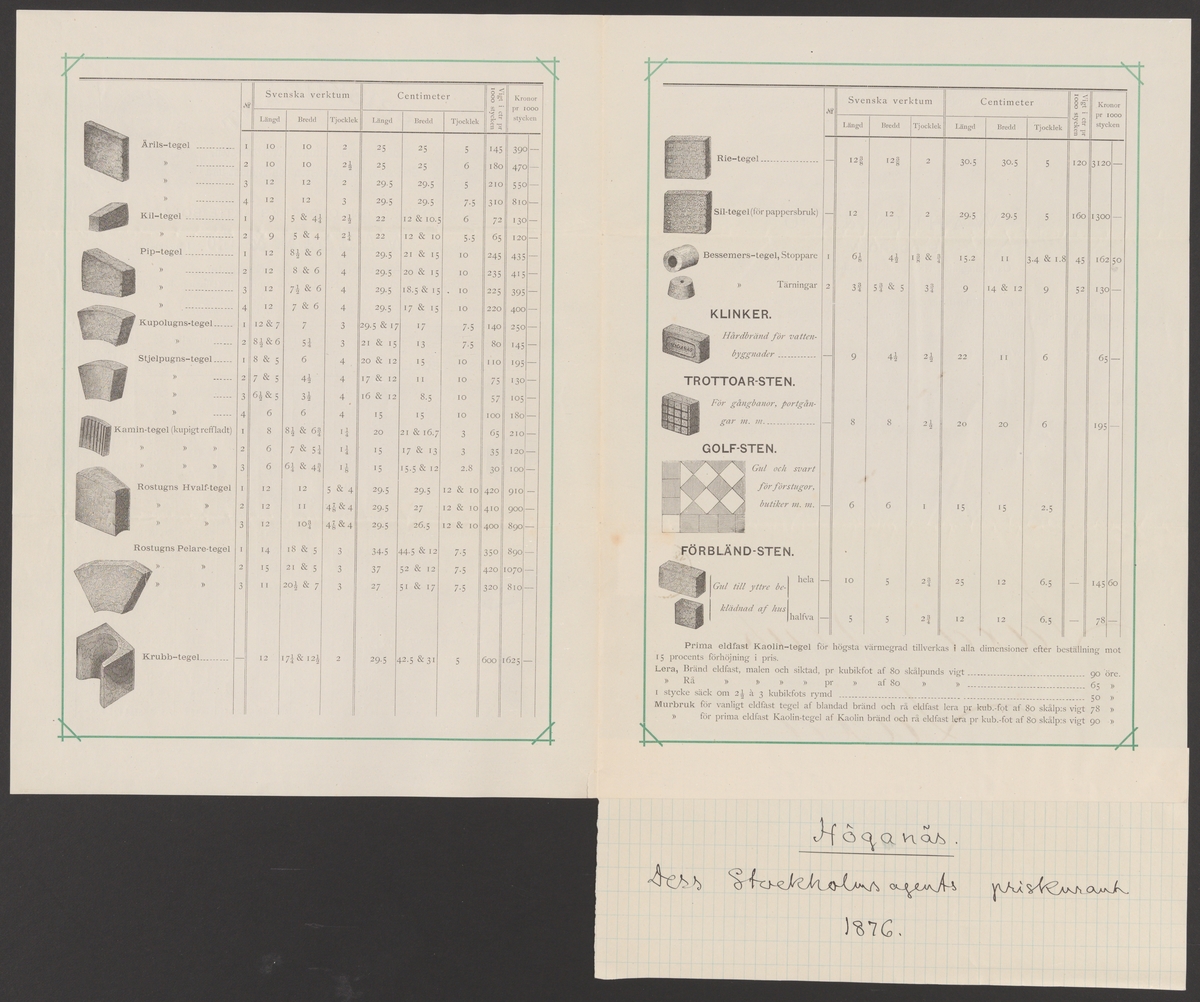 № Svenska verktum Centimeter Vigt i ctr pr 1000 stycken Kronor pr 1000 stycken
Längd Bredd Tjocklek Längd Bredd Tjocklek
Ärils-tegel 1 10 10 2 25 25 5 145 390 —
» 2 10 10 2½ 25 25 6 180 470 —
» 3 12 12 2 29.5 29.5 5 210 550 —
» 4 12 12 3 29.5 29.5 7.5 310 810 —
Kil-tegel 1 9 5 & 4¼ 2½ 22 12 & 10.5 6 72 130 —
» 2 9 5 & 4 2¼ 22 12 & 10 5.5 65 120 —
Pip-tegel 1 12 8½ & 6 4 29.5 21 & 15 10 245 435 —
» 2 12 8 & 6 4 29.5 20 & 15 10 235 415 —
» 3 12 7½ & 6 4 29.5 18.5 & 15 10 225 395 —
» 4 12 7 & 6 4 29.5 17 & 15 10 220 400 —
Kupolugns-tegel 1 12 & 7 7 3 29.5 & 17 17 7.5 140 250 —
» 2 8½ & 6 5¼ 3 21 & 15 13 7.5 80 145 —
Stjelpugns-tegel 1 8 & 5 6 4 20 & 12 15 10 110 195 —
» 2 7 & 5 4½ 4 17 & 12 11 10 75 130 —
» 3 6½ & 5 3½ 4 16 & 12 8.5 10 57 105 —
» 4 6 6 4 15 15 10 100 180 —
Kamin-tegel (kupigt reffladt) 1 8 8½ & 6¾ 1⅛ 20 21 & 16.7 3 65 210 —
» » » 2 6 7 & 5¼ 1¼ 15 17 & 13 3 35 120 —
» » » 3 6 6¼ & 4¾ 1⅛ 15 15.5 & 12 2.8 30 100 —
Rostugns Hvalf-tegel 1 12 12 5 & 4 29.5 29.5 12 & 10 420 910 —
» » 2 12 11 4⅞ & 4 29.5 27 12 & 10 410 900 —
» » 3 12 10¾ 4⅞ & 4 29.5 26.5 12 & 10 400 890 —
Rostugns Pelare-tegel 1 14 18 & 5 3 34.5 44.5 & 12 7.5 350 890 —
» » 2 15 21 & 5 3 37 52 & 12 7.5 420 1070 —
» » 3 11 20½ & 7 3 27 51 & 17 7.5 320 810 —
Krubb-tegel — 12 17¼ & 12½ 2 29.5 42.5 & 31 5 600 1625 —
№ Svenska verktum Centimeter Vigt i ctr pr 1000 stycken Kronor pr 1000 stycken
Längd Bredd Tjocklek Längd Bredd Tjocklek
Rie-tegel — 12⅜ 12⅜ 2 30.5 30.5 5 120 3120 —
Sil-tegel (för pappersbruk) — 12 12 2 29.5 29.5 5 160 1300 —
Bessemers-tegel, Stoppare 1 6⅛ 4½ 1⅜ & ¾ 15.2 11 3.4 & 1.8 45 162 50
» Tärningar 2 3¾ 5¾ & 5 3¾ 9 14 & 12 9 52 130 —
KLINKER.
HÖGANÄS
Hårdbränd för vatten-
byggnader — 9 4½ 2½ 22 11 6 65 —
TROTTOAR-STEN.
För gångbanor, portgån-
gar m. m. — 8 8 2½ 20 20 6 195 —
GOLF-STEN.
Gul och svart
för förstugor,
butiker m. m. — 6 6 1 15 15 2.5
FÖRBLÄND-STEN.
Gul till yttre be-
klädnad af hus
hela — 10 5 2¾ 25 12 6.5 — 145 60
halfva — 5 5 2¾ 12 12 6.5 — 78 —
Prima eldfast Kaolin-tegel för högsta värmegrad tillverkas i alla dimensioner efter beställning mot
15 procents förhöjning i pris.
Lera, Bränd eldfast, malen och siktad, pr kubikfot af 80 skålpunds vigt 90 öre.
» Rå » » » » pr » af 80 » » 65 »
1 stycke säck om 2½ à 3 kubikfots rymd 50 »
Murbruk för vanligt eldfast tegel af blandad bränd och rå eldfast lera pr kub.-fot af 80 skålp:s vigt 78 »
» för prima eldfast Kaolin-tegel af Kaolin bränd och rå eldfast lera pr kub.-fot af 80 skålp:s vigt 90 »
Höganäs.
Dess Stockholmsagents priskurant
1876.